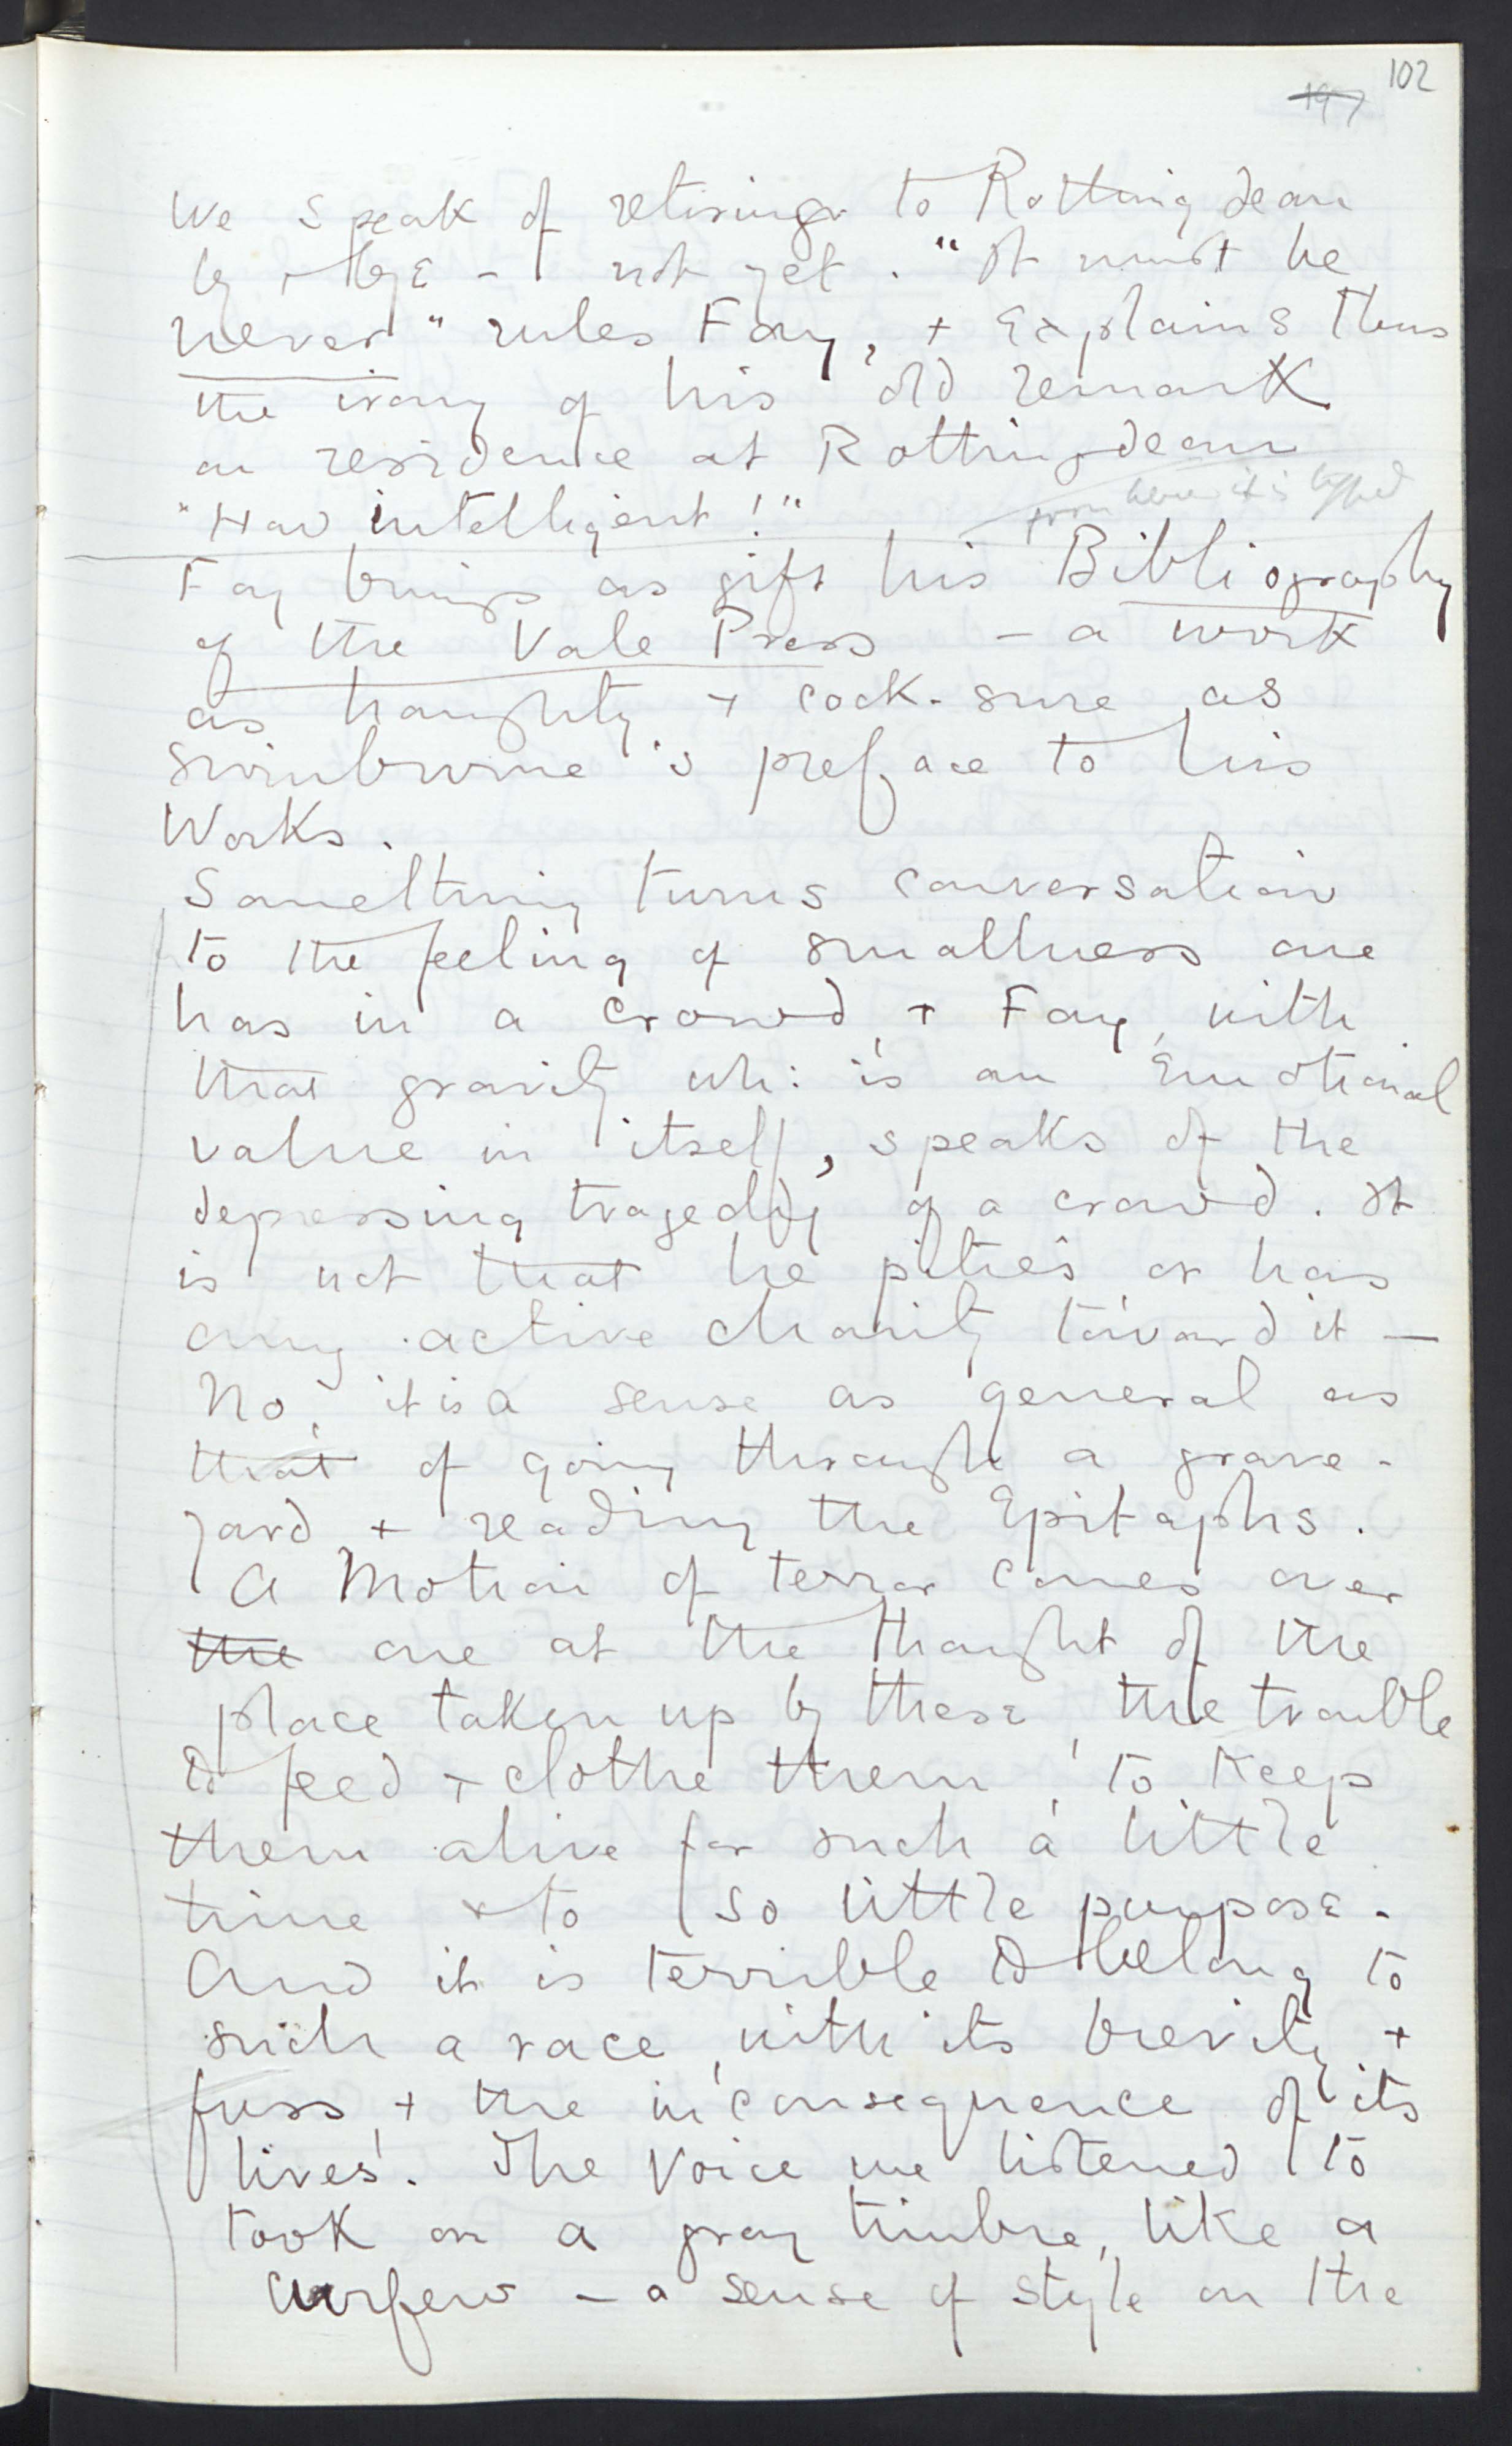 102
197
We speak of retiring to Rottingdean
by & bye - not yet. "It must be
never" rules Fay, + Explains thus
the irony of his old remark
on residence at Rottingdean
"How intelligent!"
from here it is typed
Fay brings as gift his Bibliography
of the Vale Press - a work
as haughty + cock-sure as
Swinburne's preface to his
Works.
Something turns conversation
to the feeling of smallness one
has in a crowd, + Fay, with
that gravity wh: is an Emotional
value in itself, speaks of the
depressing tragedy of a crowd. It
is not that he pities or has
any active charity toward it —
No, it is a sense as general as
that of going through a grave-
yard + reading the Epitaphs.
A Motion of terror comes over
the one at the thought of the
place taken up by these, the trouble
to feed + clothe them, to keep
them alive for such a little
time + to so little purpose.
And it is terrible to belong to
such a race, with its brevity +
fuss, + the inconsequence of its
lives. The Voice we listened to
took on a gray timbre, like a
Curfew - a sense of style on the